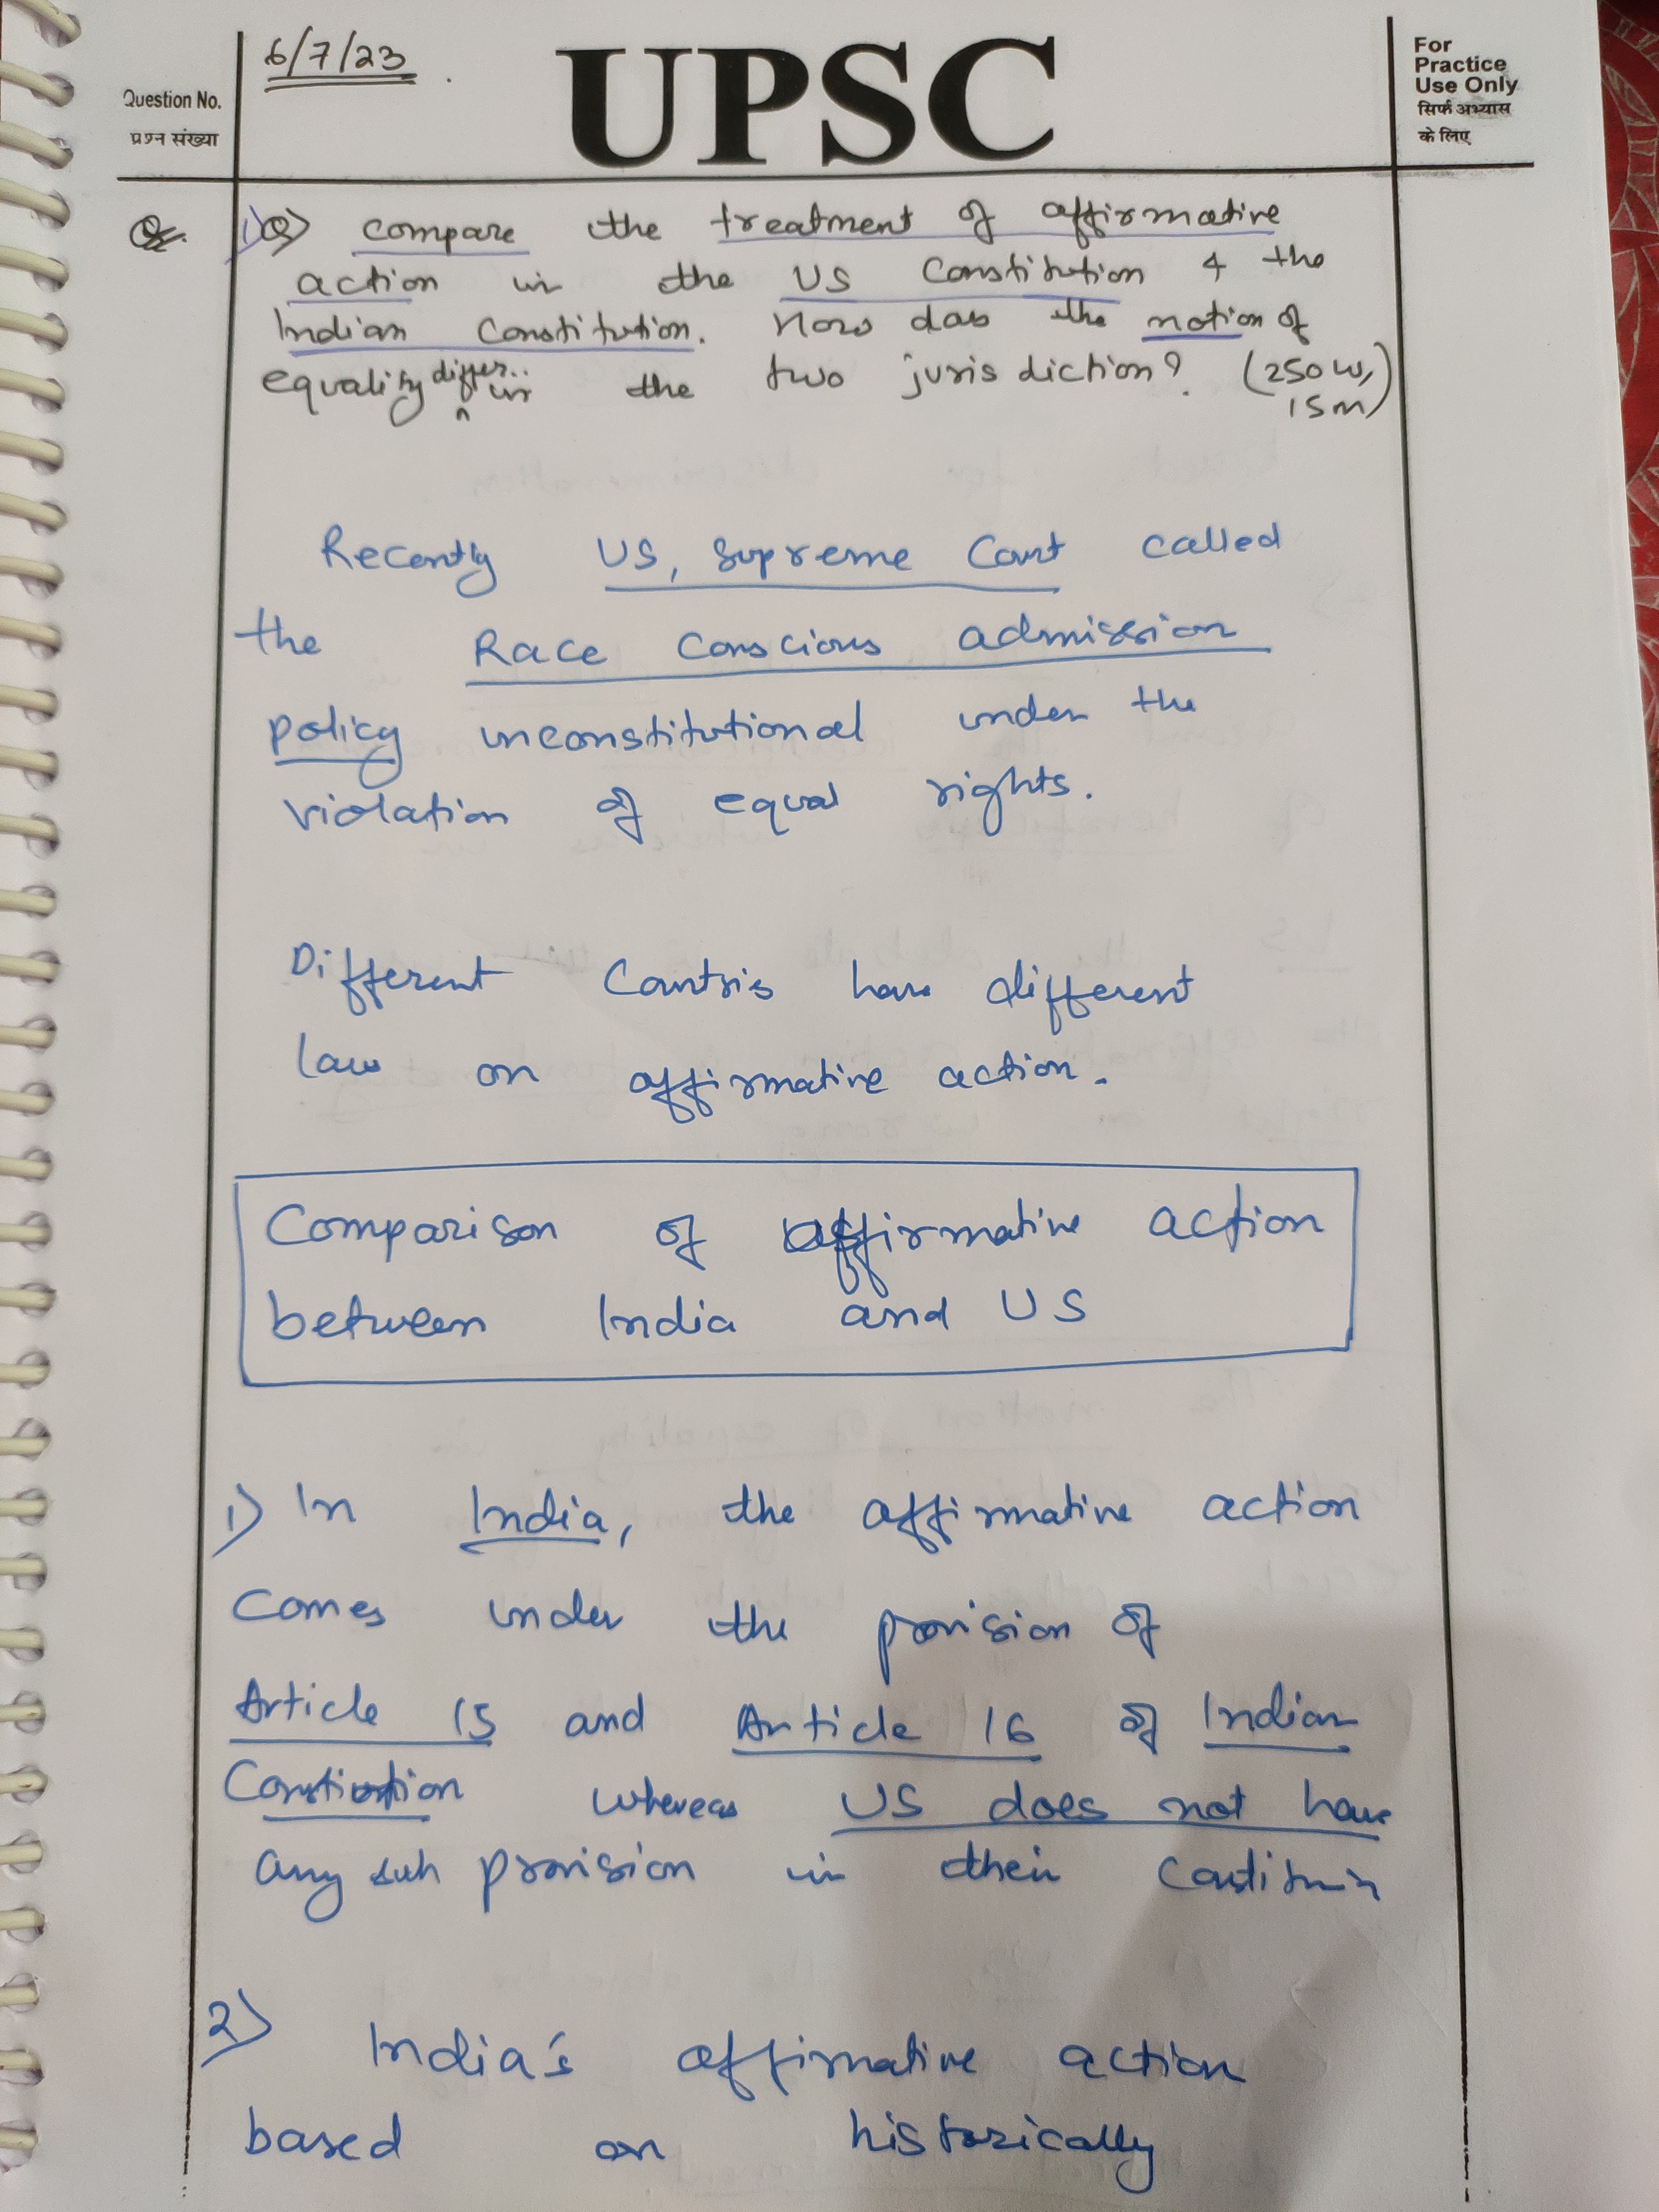 6/7/23
UPSC
Question No.
प्रश्न संख्या
For
Practice
Use Only
सिर्फ अभ्यास
के लिए
1) Q) compare the treatment of affirmative
action in the US Constitution & the
Indian Constitution. How does the notion of
equality differ in the two jurisdiction? (250 w,
15 m)
Recently US, Supreme Court called
the Race Conscious admission
policy unconstitutional under the
violation of equal rights.
Different Countris have different
law on affirmative action.
Comparison of affirmative action
between India and US
1) In India, the affirmative action
comes under the provision of
Article 15 and Article 16 of Indian
Constitution whereas US does not have
any such provision in their Constitution
2) India's affirmative action
based on historically